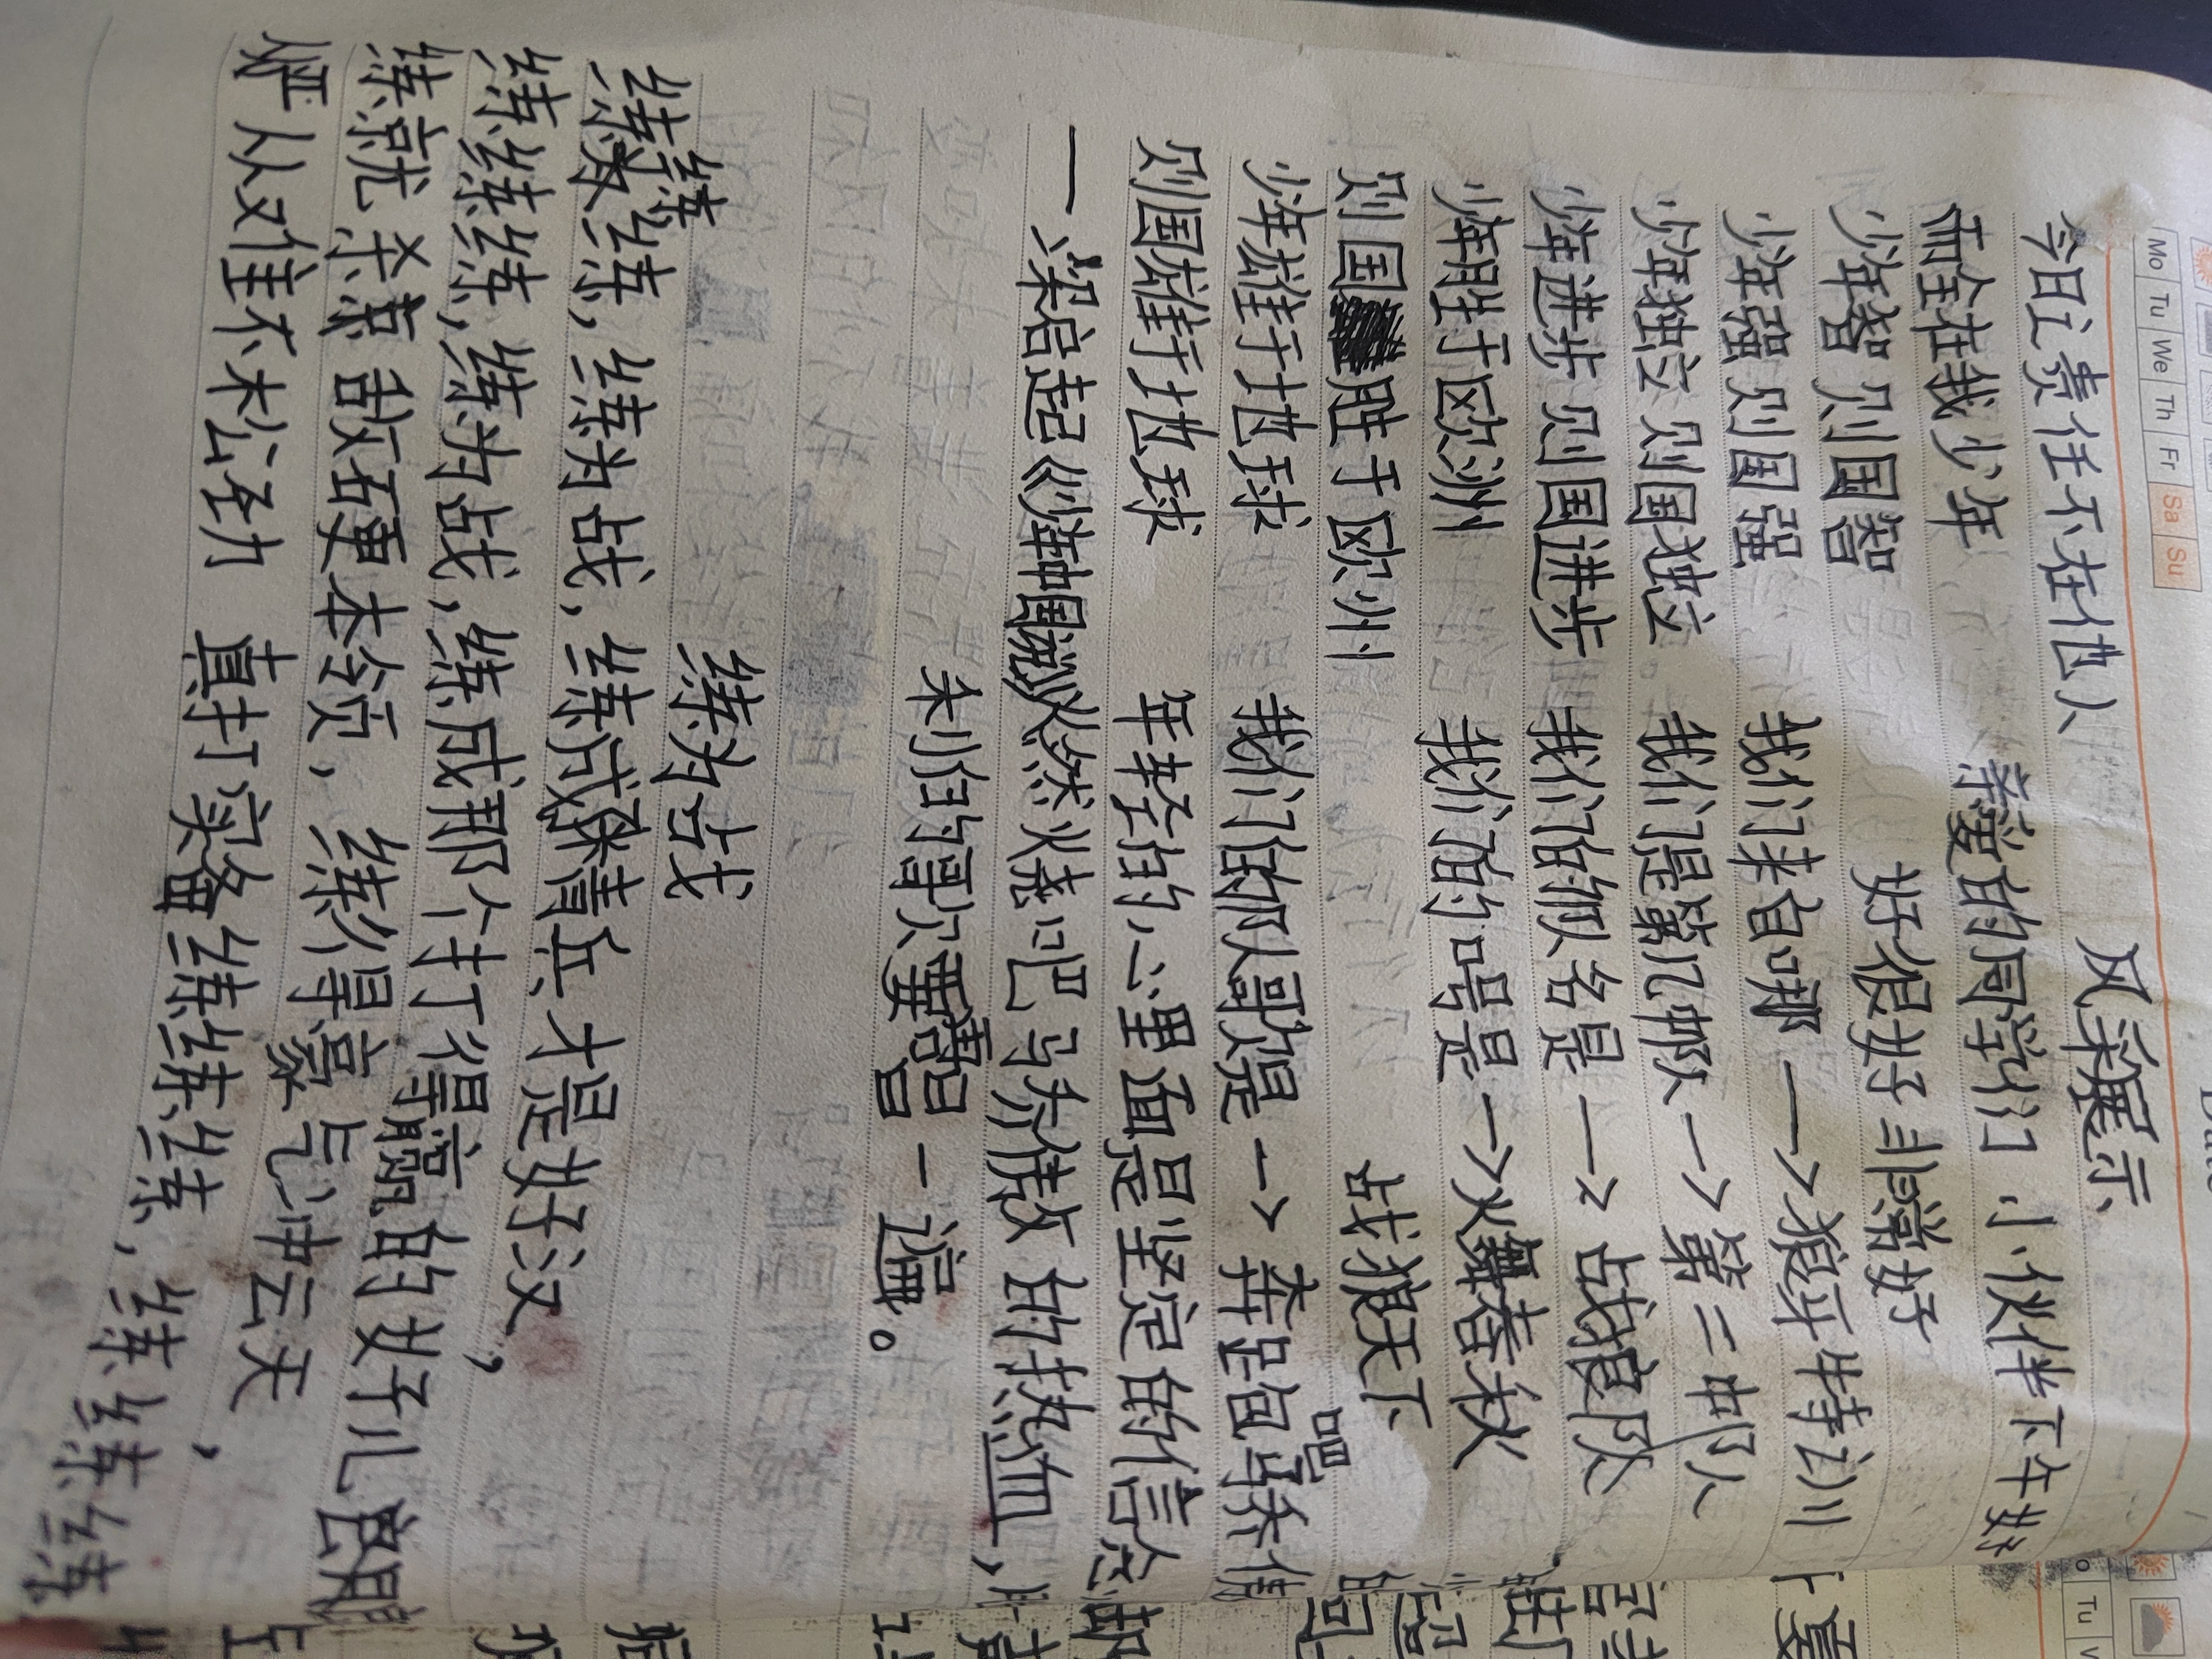 Mo Tu We Th Fr Sa Su
风采展示
今日之责任不在他人
而全在我少年
亲爱的同学们 小伙伴下午好
少年智 则国智
好很好非常好
少年强 则国强
我们来自哪 → 狼牙特训
少年独立 则国独立。
我们是第几部队 → 第二部队
少年进步 则国进步
我们的队名是 → 战狼队
少年胜于欧洲
我们的口号是 → 火舞春秋
则国胜于欧州
战狼天下
少年雄于地球
我们的队歌是 → 奔跑吧骄傲
则国雄于地球
年轻的心里面是坚定的信念
—梁启起《少年中国说》
火然火烧吧 骄傲的热血,
未归的得次要唱一遍。
练为战
练练
练练练, 练为战, 练成精兵才是好汉,
练练练, 练为战, 练成那个打得赢的好儿
练就杀敌硬本领, 练得豪气冲云天,
严从难不松劲 真打实备练练练, 练练